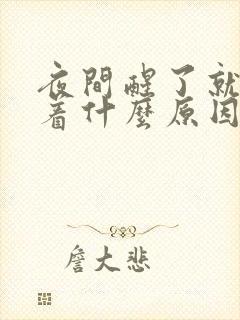 夜間醒了就
着什麼原因
詹大悲